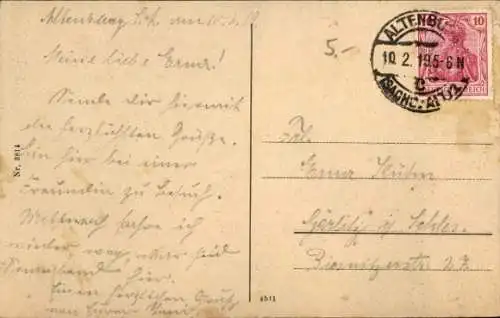 Altenburg S.A. am 10.2.19
Meine liebe Erna!
Sende dir hiermit
die herzlichsten Grüße.
Bin hier bei einer
Freundin zu Besuch.
Mittwoch fahre ich
wieder weg
Sonnabend hier.
Einen herzlichen Gruß
von
Nr. 3814
5.-
ALTENBURG
10.2.19.5-6N
C
(SACHS.-ALT.)
10
REICH
Frl.
Erna
Görlitz i/ Schles.
Biesnitzerstr. 27.
4511